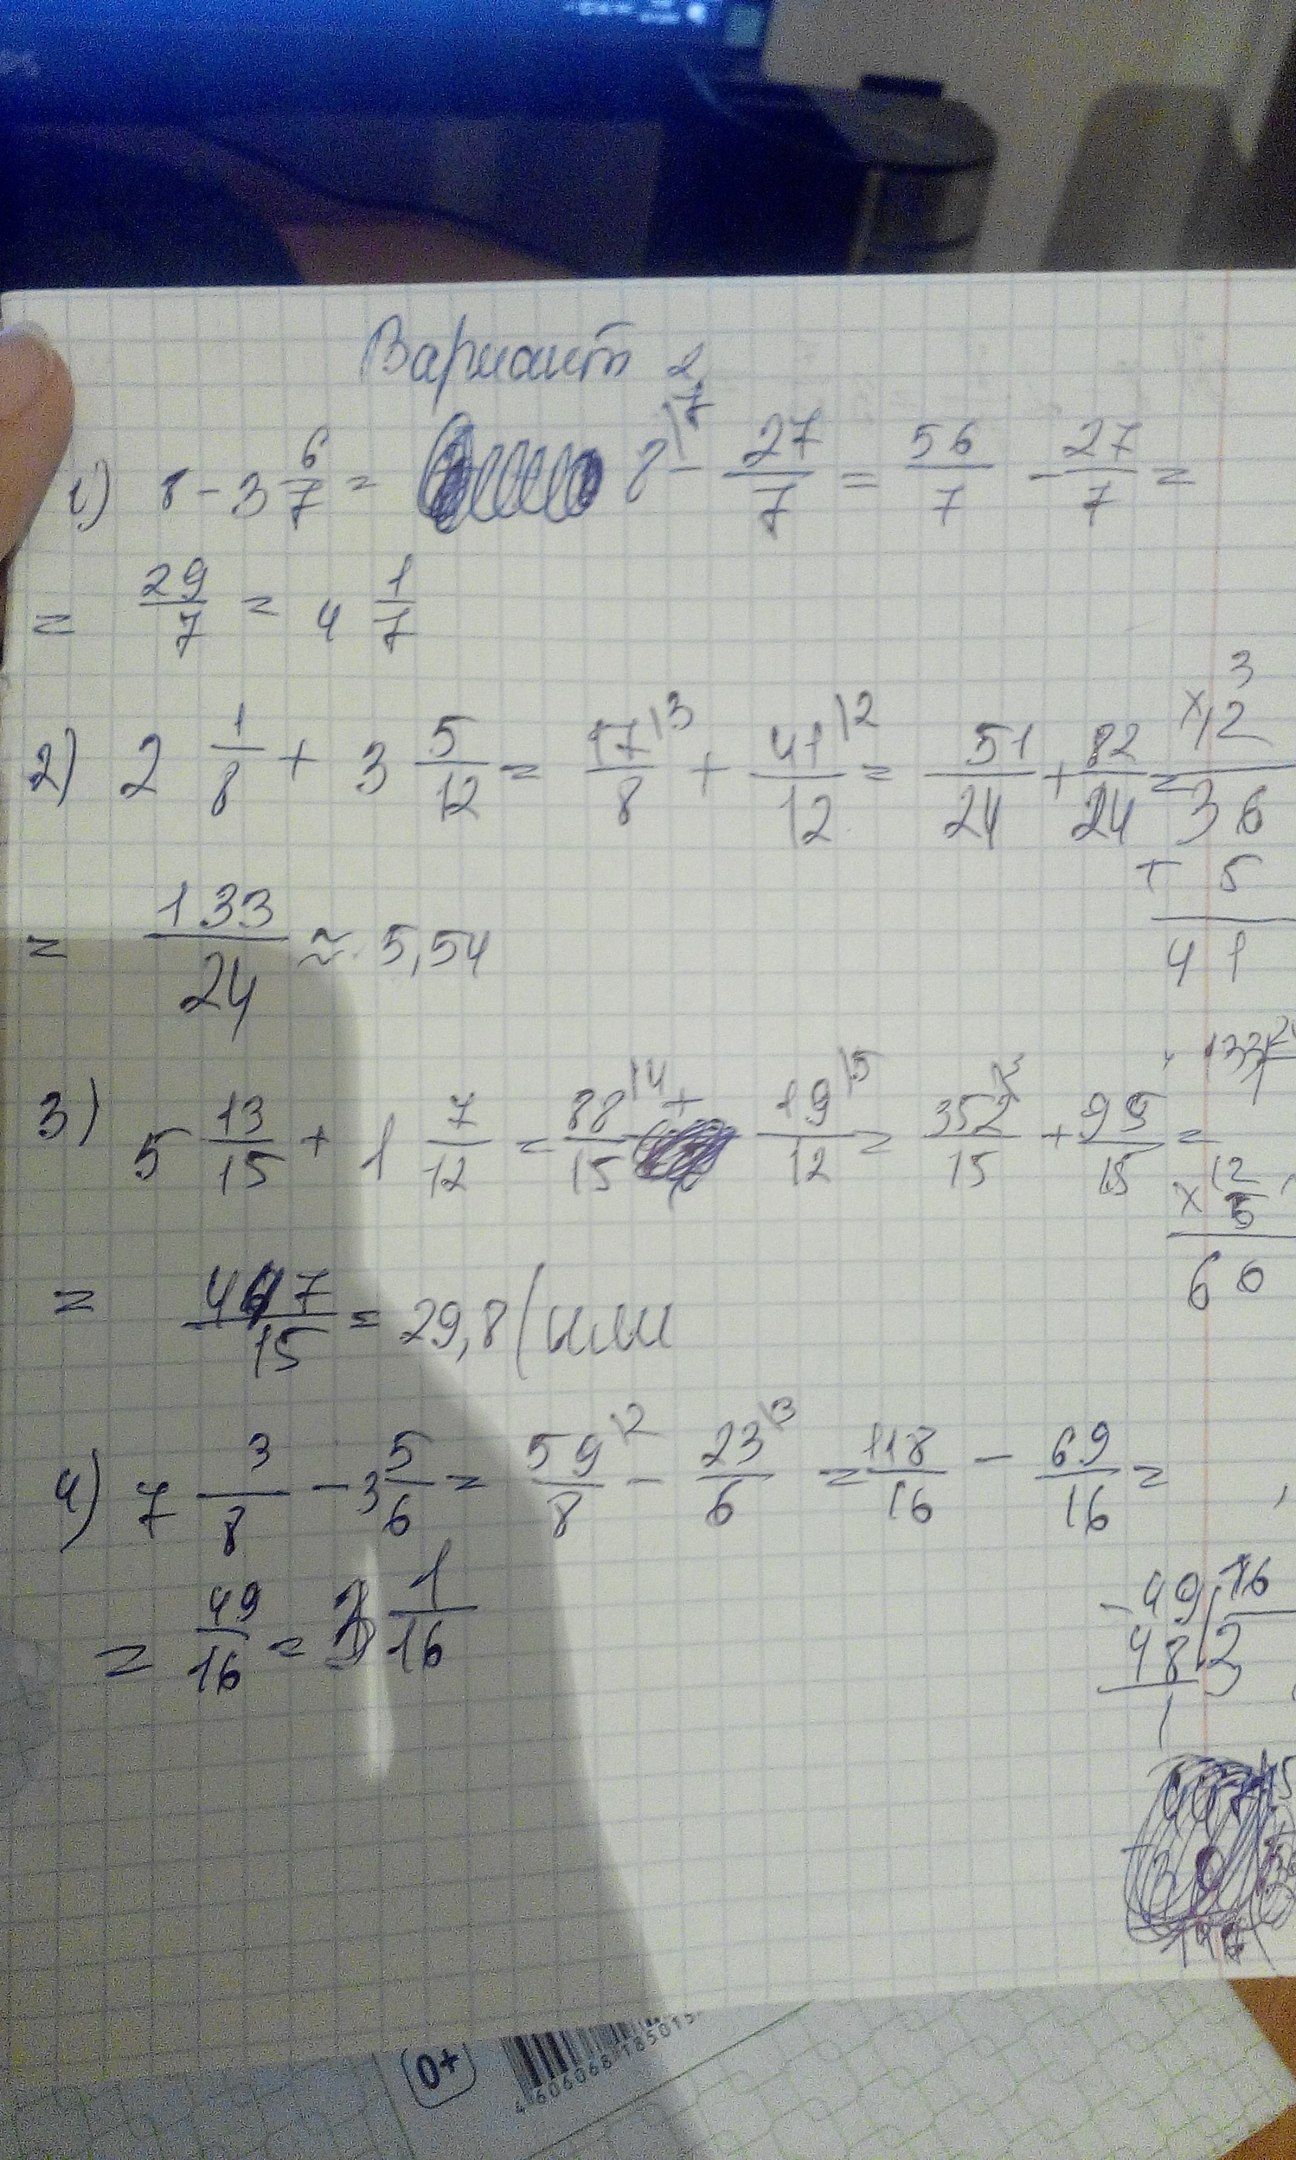 Вариант 2
1) 8 - 3 6/7 = 8\7 - 27/7 = 56/7 - 27/7 =
= 29/7 = 4 1/7
2) 2 1/8 + 3 5/12 = 17\3/8 + 41\2/12 = 51/24 + 82/24 =
× 3
12
36
+ 5
41
= 133/24 ≈ 5,54
3) 5 13/15 + 1 7/12 = 88\4/15 + 19\5/12 = 352/15 + 95/15 =
× 12
5
60
= 447/15 = 29,8 (или
4) 7 3/8 - 3 5/6 = 59\2/8 - 23\3/6 = 118/16 - 69/16 =
= 49/16 = 3 1/16
- 49 16
48 3
1
0+
4606068185015